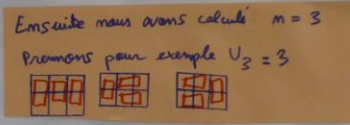 Ensuite nous avons calculé n = 3
Prennons pour exemple U₃ = 3